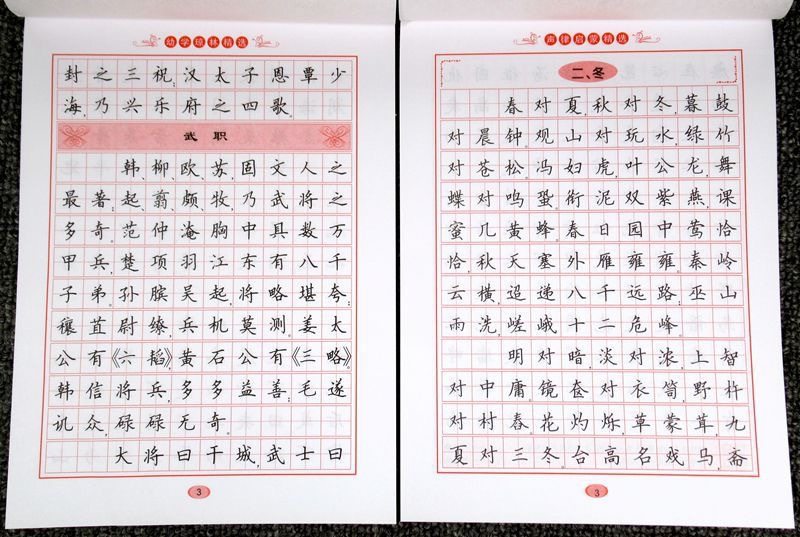 幼学琼林精选
封之三祝；汉太子恩覃少
海，乃兴乐府之四歌。
武职
韩、柳、欧、苏，固文人之
最著；起、翦、颇、牧，乃武将之
多奇。范仲淹胸中具数万
甲兵，楚项羽江东有八千
子弟。孙膑吴起，将略堪夸；
穰苴尉缭，兵机莫测。姜太
公有《六韬》，黄石公有《三略》。
韩信将兵，多多益善；毛遂
讥众，碌碌无奇。
大将曰干城，武士曰
3
声律启蒙精选
二、冬
春对夏，秋对冬，暮鼓
对晨钟。观山对玩水，绿竹
对苍松。冯妇虎，叶公龙，舞
蝶对鸣蛩。衔泥双紫燕，课
蜜几黄蜂。春日园中莺恰
恰，秋天塞外雁雍雍。秦岭
云横，迢递八千远路；巫山
雨洗，嵯峨十二危峰。
明对暗，淡对浓，上智
对中庸。镜奁对衣笥，野杵
对村舂。花灼烁，草蒙茸，九
夏对三冬。台高名戏马，斋
3